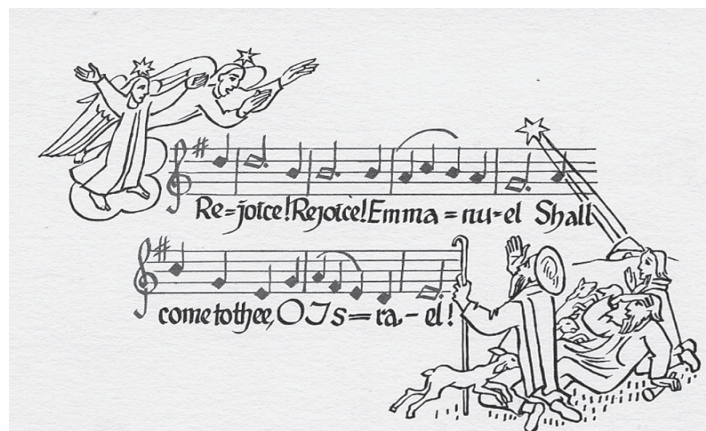 Re=joice! Rejoice! Emma=nu-el Shall
come to thee, O Is=ra-el!